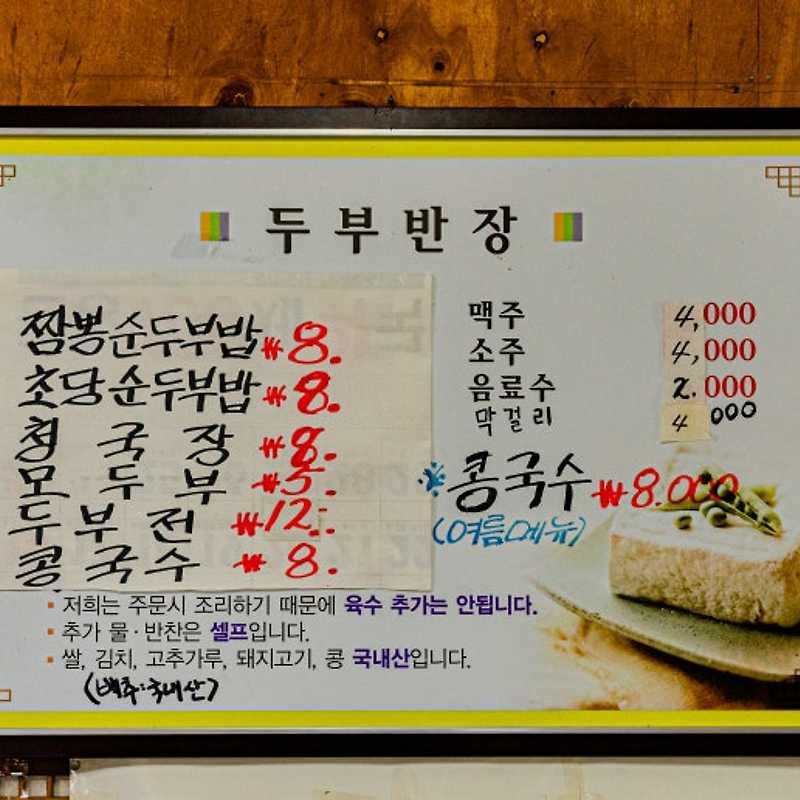 두부반장
짬뽕순두부밥 ₩8.
초당순두부밥 ₩8.
청국장 ₩8.
모두부 ₩5.
두부전 ₩12.
콩국수 ₩8.
맥주 4,000
소주 4,000
음료수 2.000
막걸리 4 000
※콩국수 ₩8.000
(여름메뉴)
▪ 저희는 주문시 조리하기 때문에 육수 추가는 안됩니다.
▪ 추가 물·반찬은 셀프입니다.
▪ 쌀, 김치, 고추가루, 돼지고기, 콩 국내산입니다.
(백추:국내산)